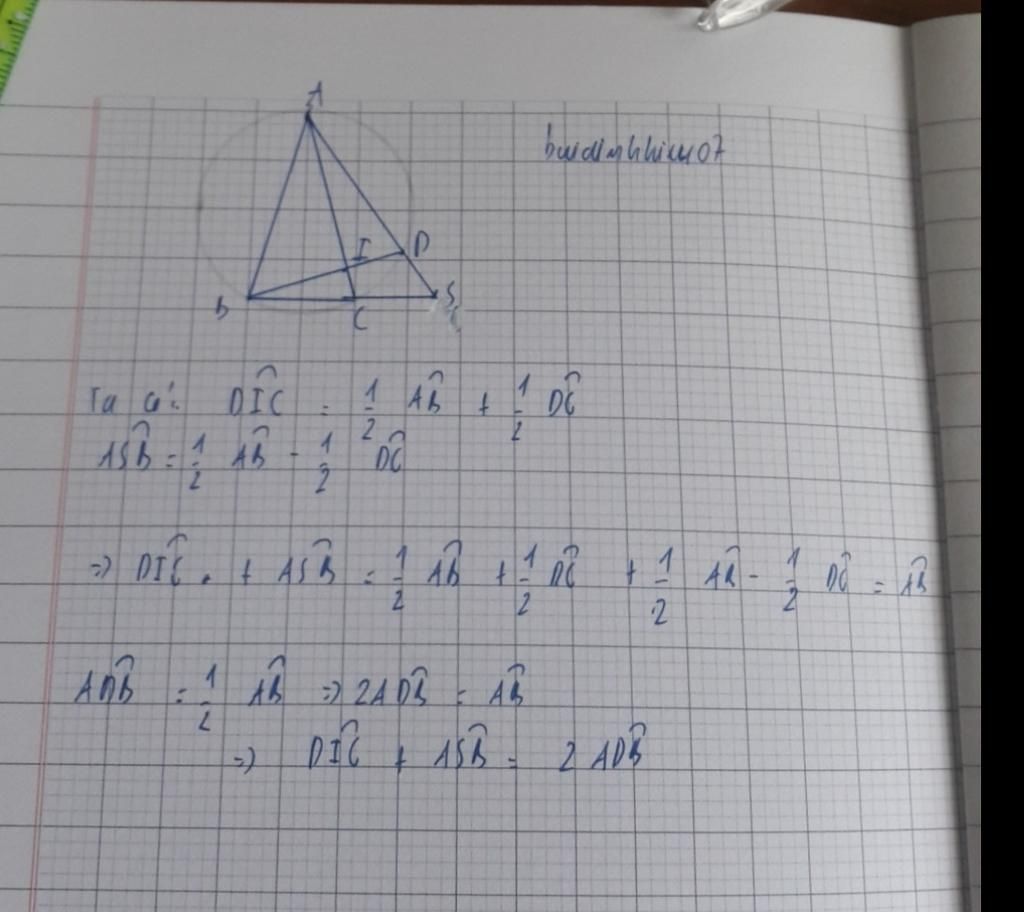 A
buidinhhieu07
I D
B C S
Ta có: DIC = 1/2 AB + 1/2 DC
ASB = 1/2 AB - 1/2 DC
=> DIC + ASB = 1/2 AB + 1/2 DC + 1/2 AB - 1/2 DC = AB
ADB = 1/2 AB => 2ADB = AB
=> DIC + ASB = 2 ADB